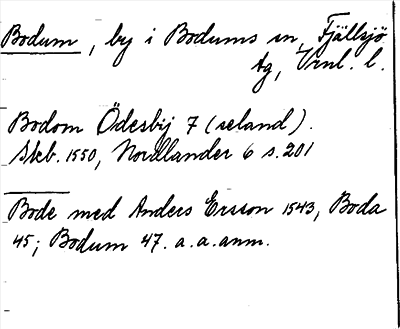 Bodum, by i Bodums sn, Fjällsjö
tg, Vrnl. l.
Bodom Ödesbij 7 (seland).
Skb. 1550, Nordlander 6 s. 201
Bode med Anders Ersson 1543, Boda
45; Bodum 47. a.a. anm.